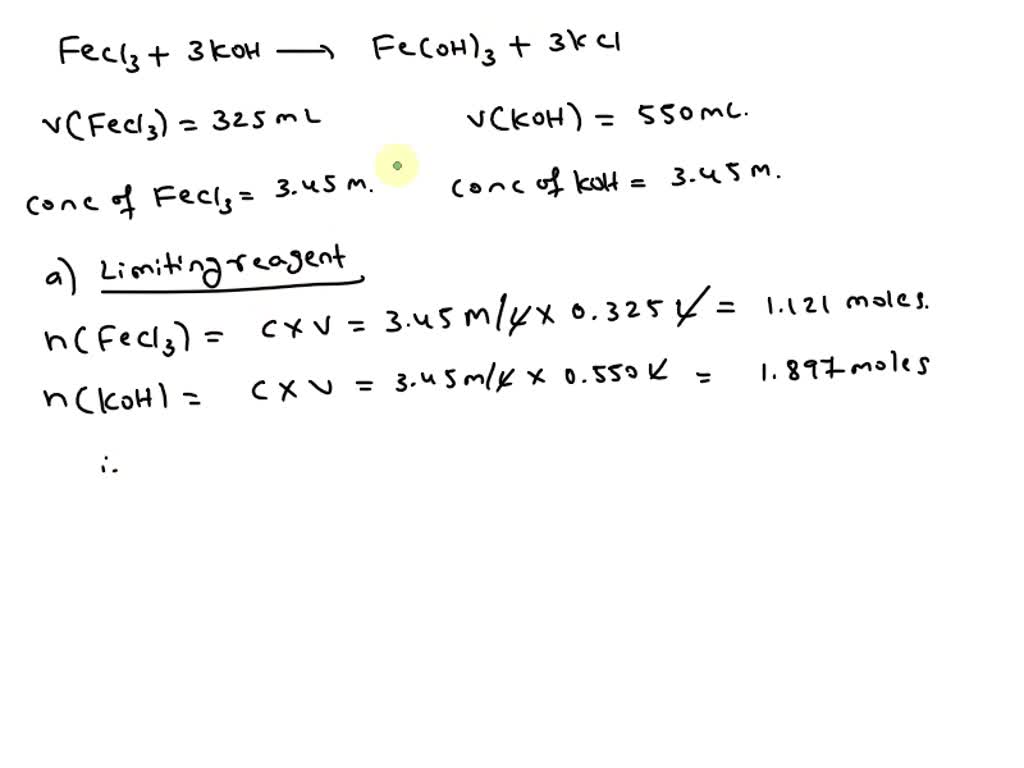 FeCl3 + 3KOH ⟶ Fe(OH)3 + 3KCl
v(FeCl3) = 325mL v(KOH) = 550mL.
conc of FeCl3 = 3.45 M. conc of KOH = 3.45 M.
a) Limiting reagent
n(FeCl3) = C × V = 3.45 m/L × 0.325 L = 1.121 moles.
n(KOH) = C × V = 3.45 m/L × 0.550 L = 1.897 moles
i.